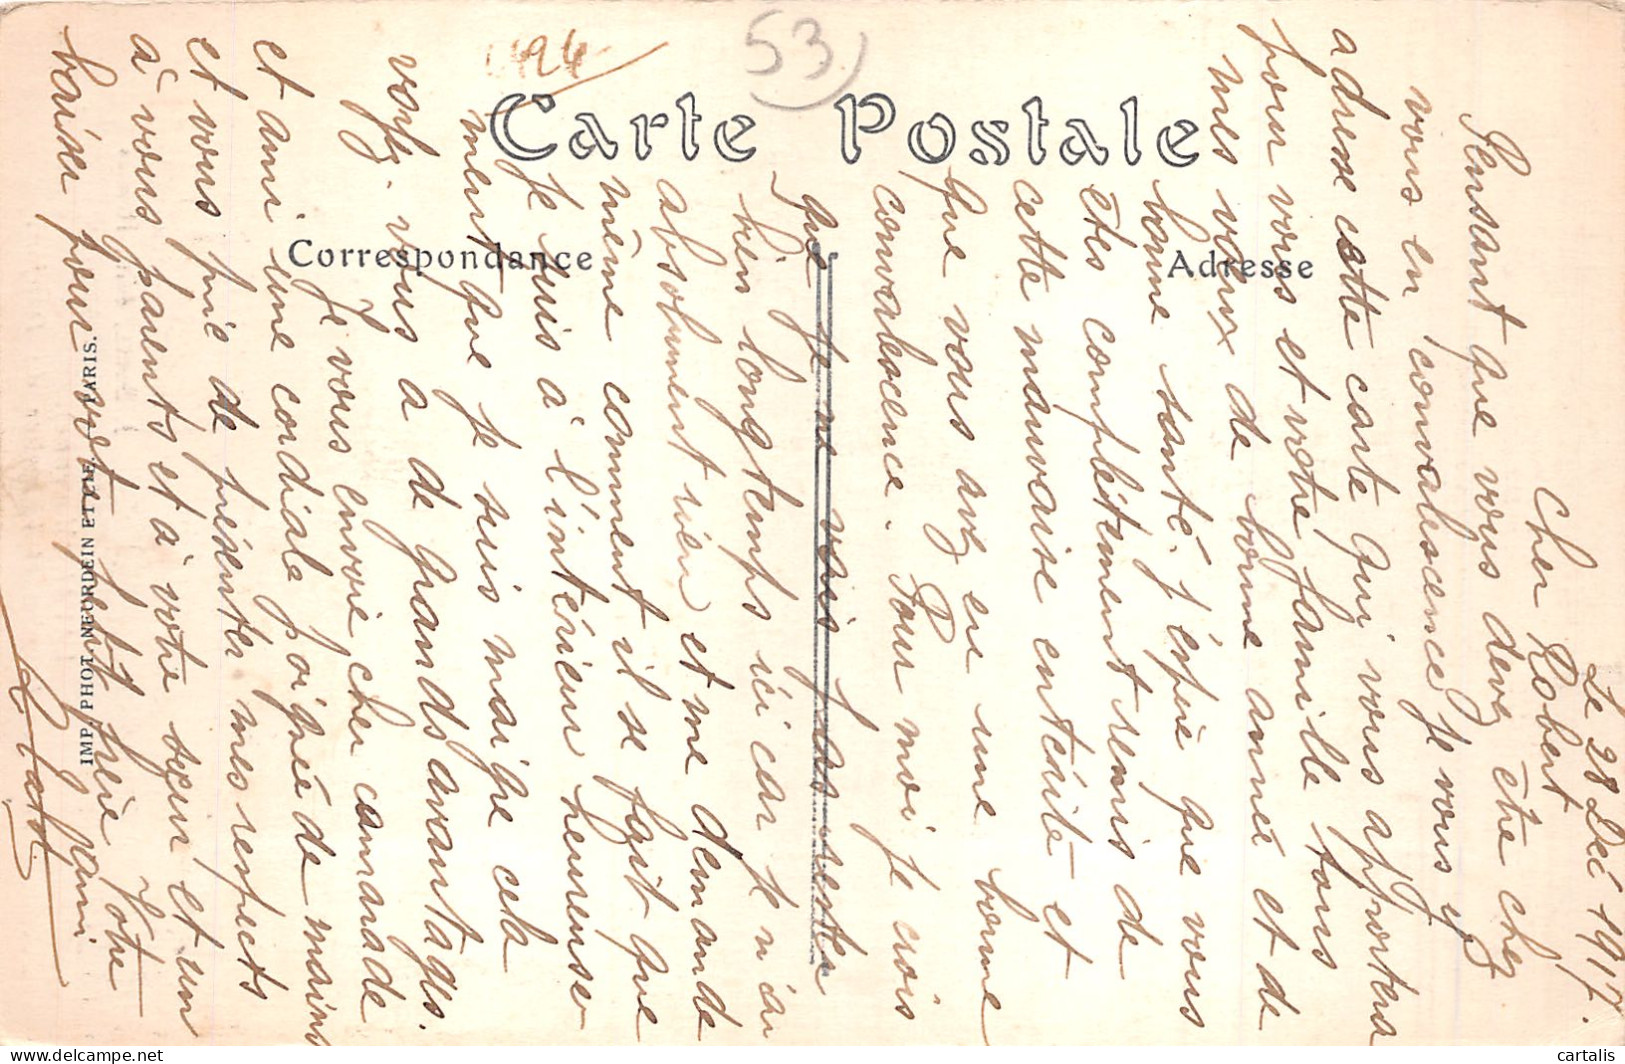 53
Carte Postale
Correspondance
Adresse
IMP. PHOT. NEURDEIN ET CIE. PARIS.
Le 28 Dec 1917.
Cher Robert
Pensant que vous devez être chez
vous en convalescence je vous y
adresse cette carte qui vous apportera
pour vous et votre famille tous
mes vœux de bonne année et de
bonne santé. J'espère que vous
êtes complètement remis de
cette mauvaise entérite et
que vous avez eu une bonne
convalescence. Pour moi je crois
que je ne vais pas rester
bien longtemps ici car je n'ai
absolument rien et me demande
même comment il se fait que
je suis à l'intérieur heureuse-
ment que je suis maigre cela
voyez-vous a de grands avantages.
Je vous envoie cher camarade
et ami une cordiale poignée de mains
et vous prie de présenter mes respects
à vous parents et à votre sœur et un
baiser pour votre petit frère Votre
ami
cartalis